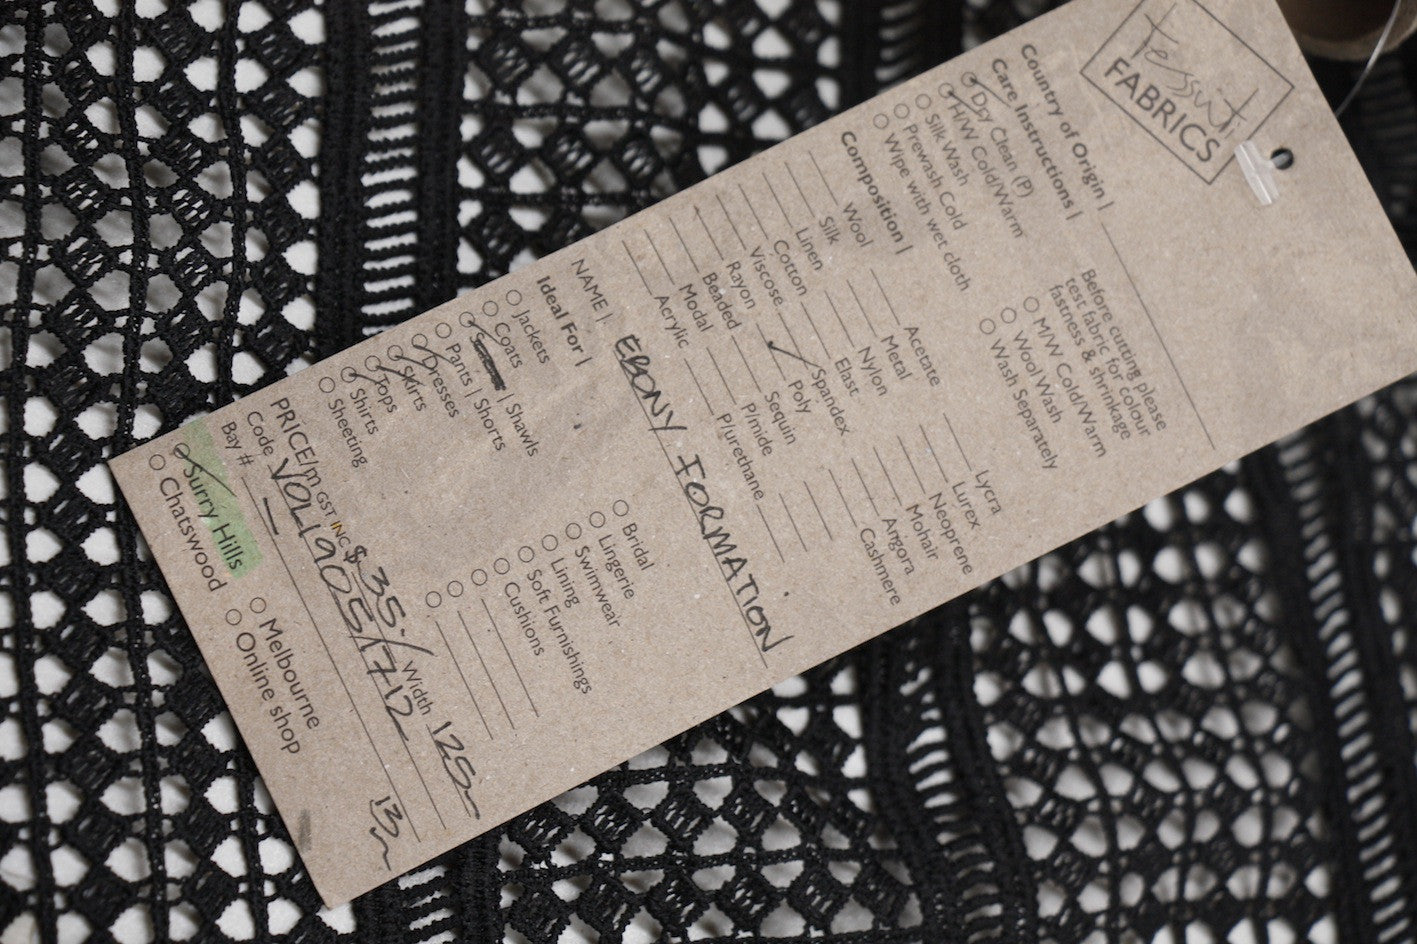 Tessuti
FABRICS
Country of Origin |
Care Instructions |
Dry Clean (P)
H/W Cold/Warm
Silk Wash
Prewash Cold
Wipe with wet cloth
Before cutting please
test fabric for colour
fastness & shrinkage
M/W Cold/Warm
Wool Wash
Wash Separately
Composition |
Wool Acetate Lycra
Silk Metal Lurex
Linen Nylon Neoprene
Cotton Elast Mohair
Viscose Spandex Angora
Rayon Poly Cashmere
Beaded Sequin
Modal P/mide
Acrylic P/urethane
NAME |. EBONY FORMATION
Ideal For |
Jackets Bridal
Coats Lingerie
| Shawls Swimwear
Pants | Shorts Lining
Dresses Soft Furnishings
Skirts Cushions
Tops
Shirts
Sheeting
PRICE/m GST INC $ 35./ Width 125
Code VOLI1905/1712
Bay # —
Surry Hills Melbourne
Chatswood Online shop
13m